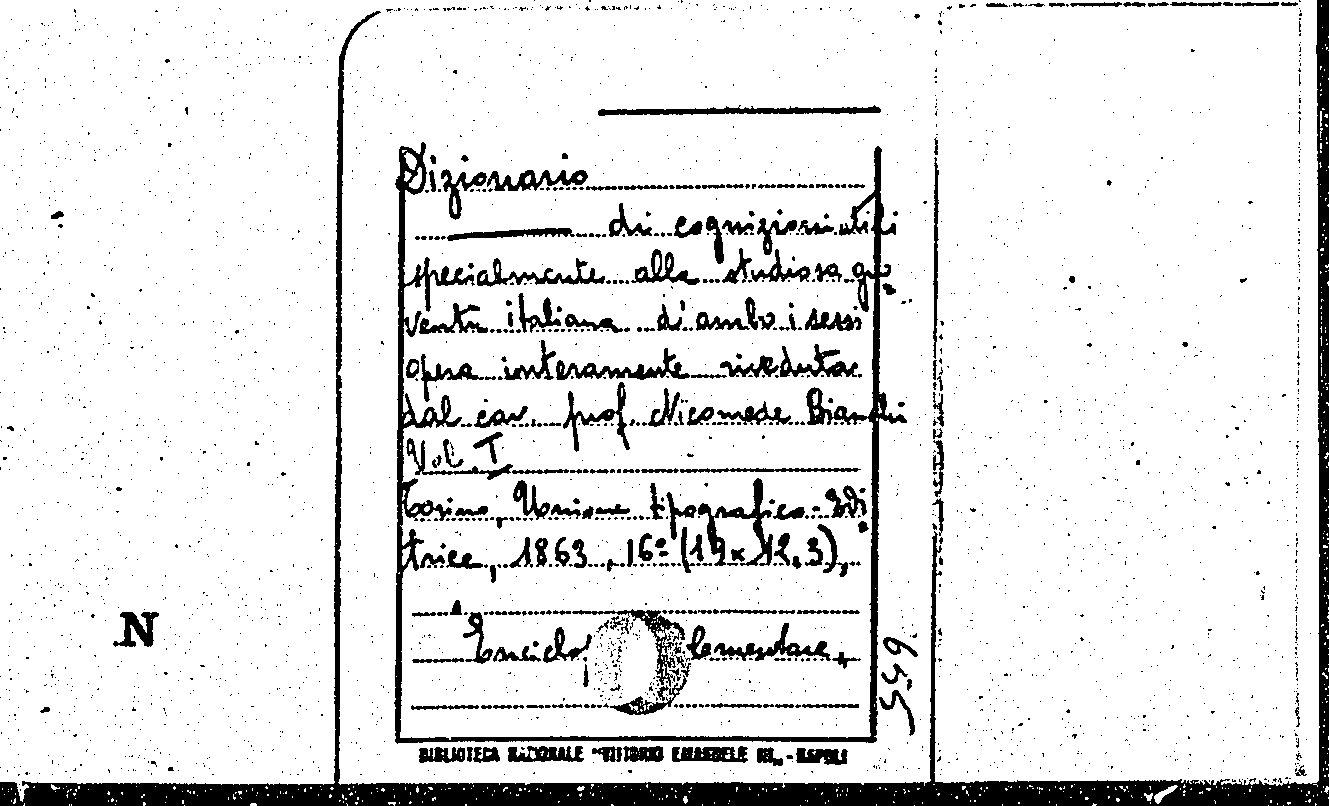 Dizionario
di cognizioni utili
specialmente alla studiosa gio=
ventù italiana d'ambo i sessi
opera interamente riveduta
dal cav. prof. Nicomede Bianchi
Vol. I
Torino, Unione tipografico-Edi=
trice, 1863, 16º (19x12,3),
lementare,
N
BIBLIOTECA NAZIONALE "VITTORIO EMANUELE III„ - NAPOLI